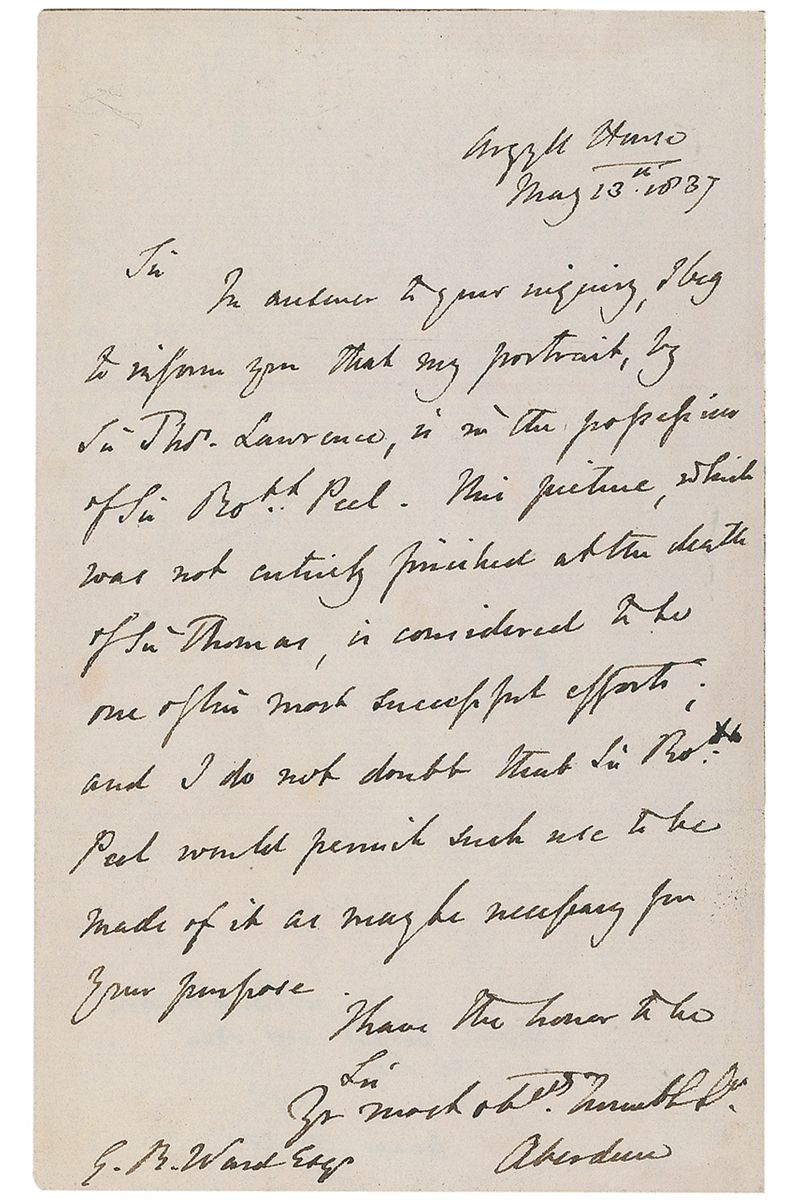 Argyll House
May 13th. 1837
Sir
In answer to your inquiry, I beg
to inform you that my portrait, by
Sir Thos. Lawrence, is in the possession
of Sir Robt. Peel. This picture, which
was not entirely finished at the death
of Sir Thomas, is considered to be
one of his most successful efforts;
and I do not doubt that Sir Robt.
Peel would permit such use to be
made of it as may be necessary for
your purpose
I have the honor to be
Sir
Yr most obedt. humble Sr.
Aberdeen
G. R. Ward Esqr